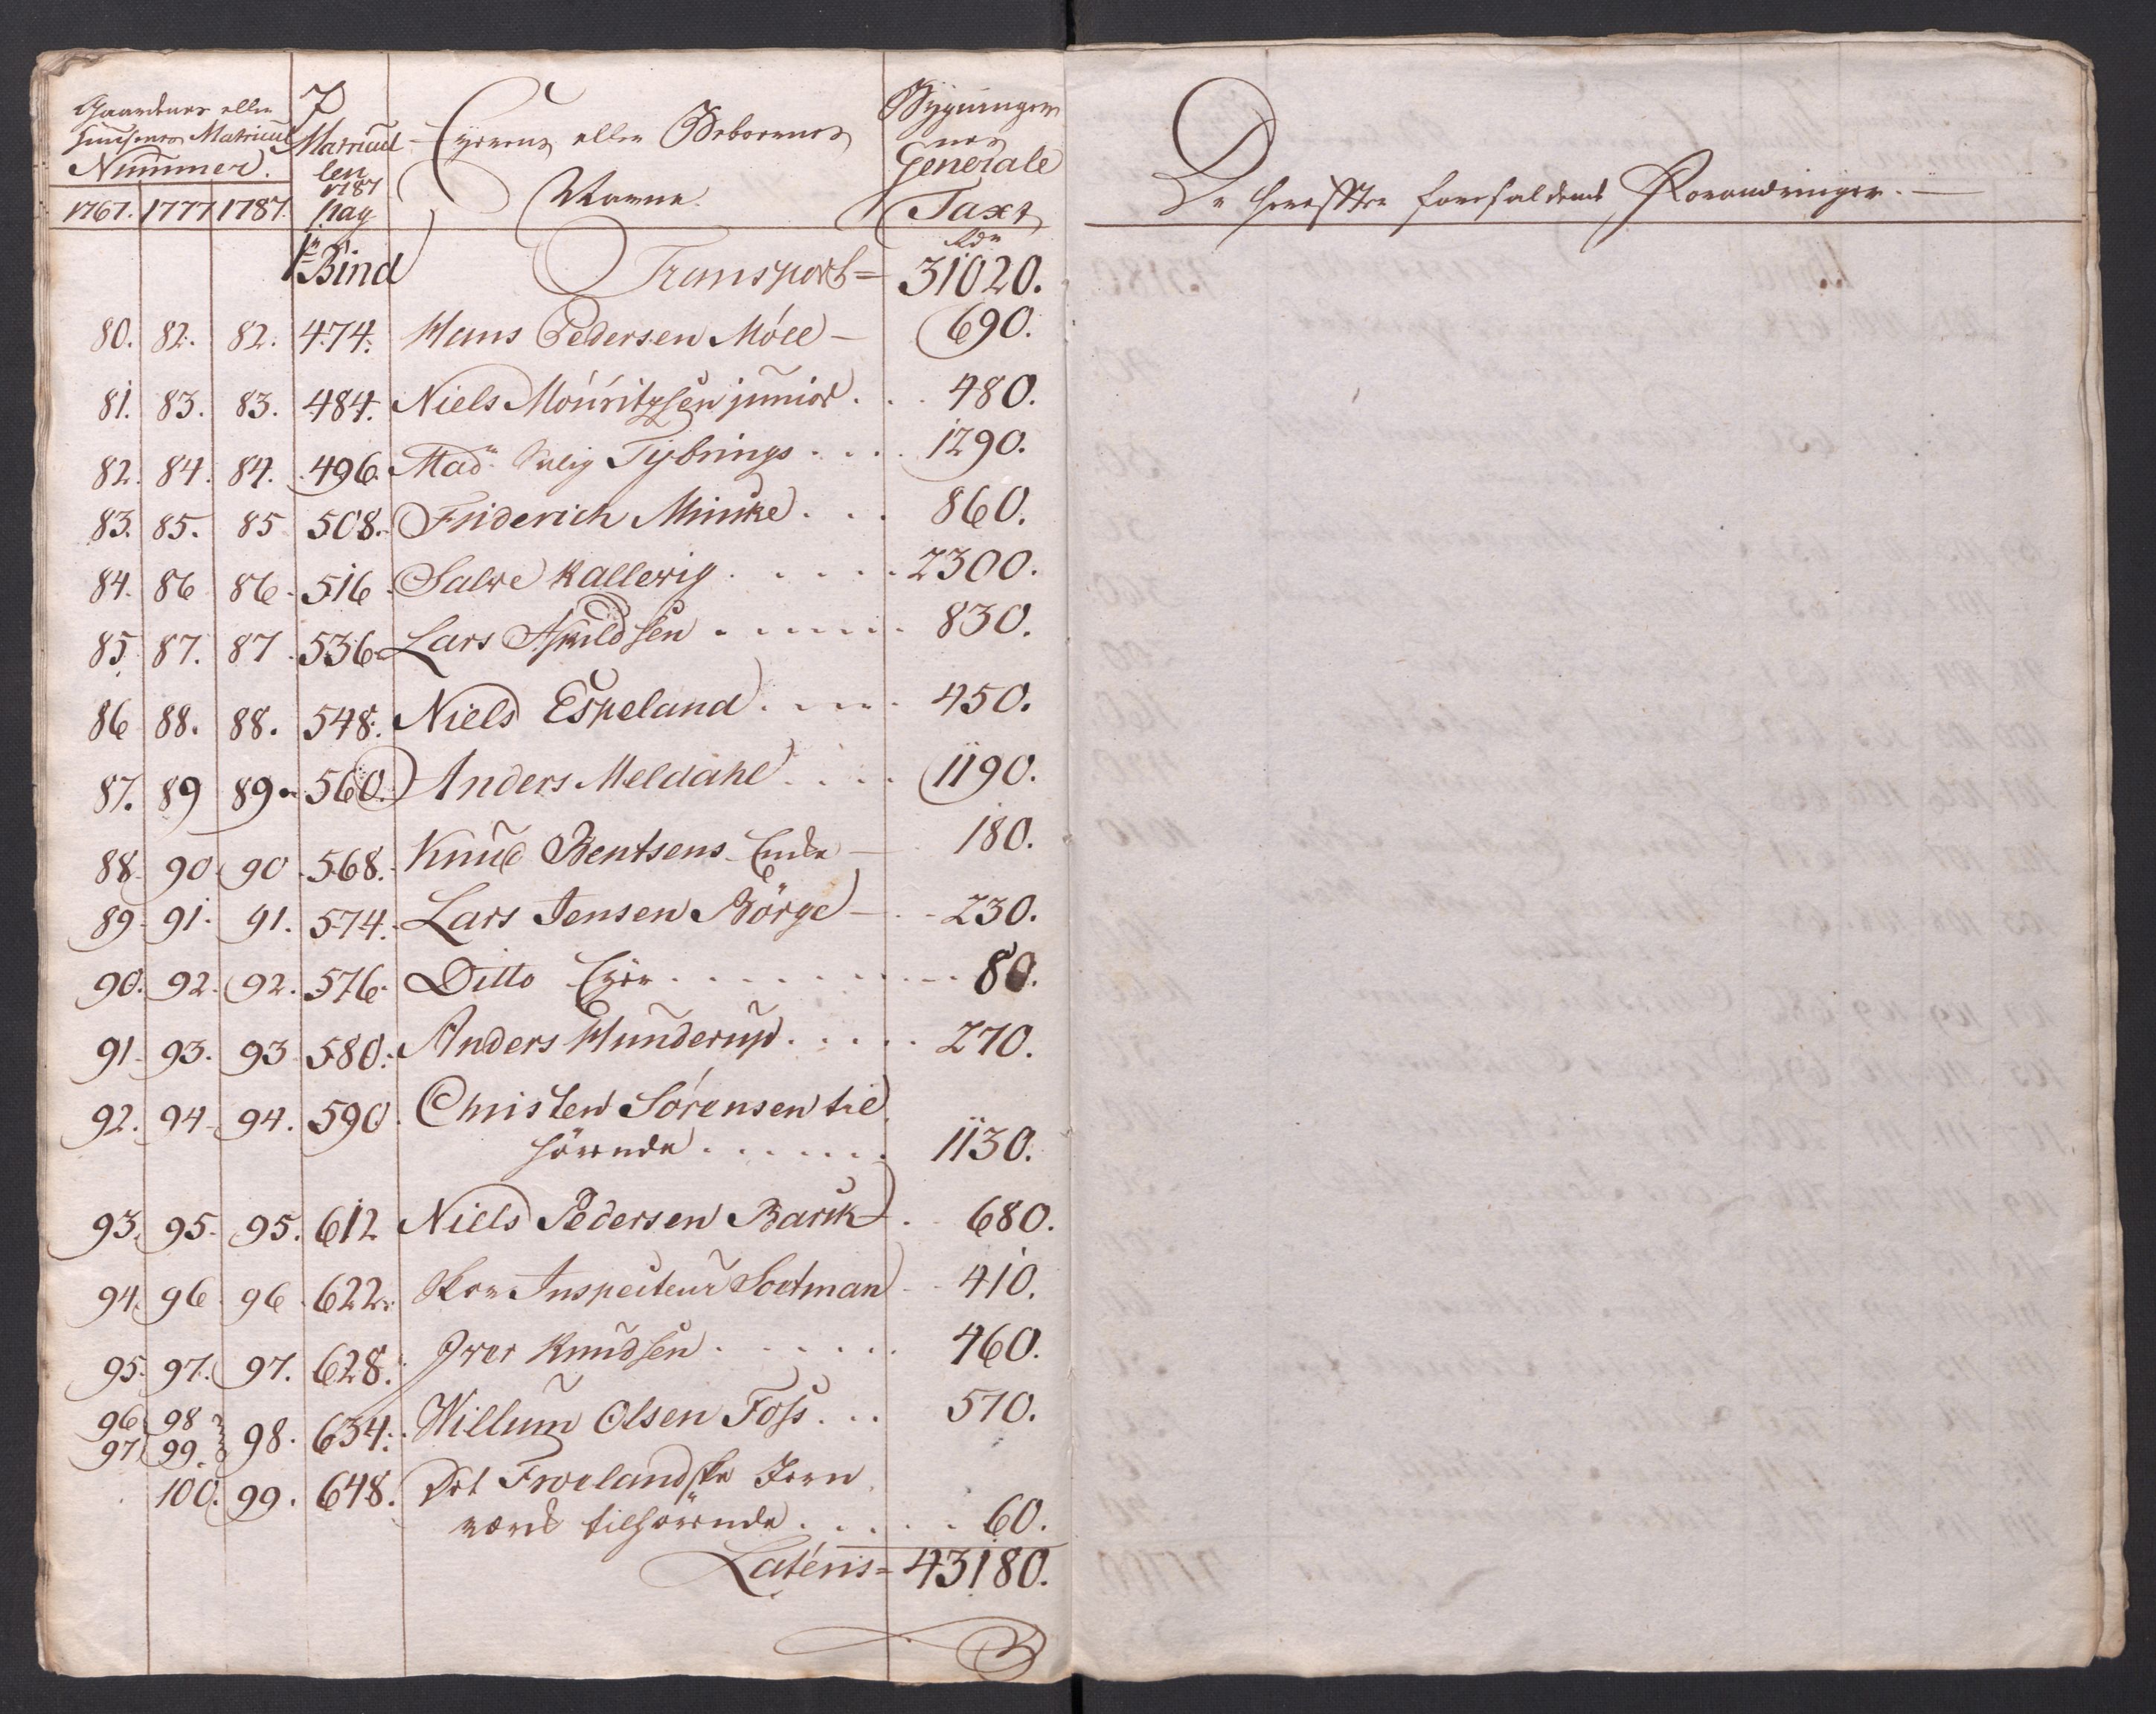 Gaardenes eller
Huusenes Matricul
Nummer.
1767. 1777 1787.
I
Matricul
len
1787
pag
Eyerens eller Beboerens
Navne.
Bygninger
nes
Generale
Taxt
Rdr
1te Bind Transport = 31020.
80. 82. 82. 474. Hans Pedersen Móll — 690.
81. 83. 83. 484. Niels Mouritzsen junior . . 480.
82. 84. 84. 496. Mad. Salig Tybrings . . . . 1290.
83. 85. 85 508. Friderich Minke . . . 860.
84. 86 86. 516. Salve Kallevig . . . . . 2300.
85. 87. 87. 536. Lars Askildsen . . . . . . 830.
86 88. 88. 548. Niels Espeland . . . . 450.
87. 89 89. 560. Anders Meldahl . . . . 1190.
88. 90. 90. 568. Knud Bentsens Enke — 180.
89. 91. 91. 574. Lars Jensen Börge — 230.
90. 92. 92. 576. Ditto Eyer . . . . . . . . . . 80.
91. 93. 93 580. Anders Hunderup . . . . . 270.
92. 94. 94. 590. Christen Sórensen til
hörende . . . . . . . 1130.
93. 95. 95. 612 Niels Pedersen Barik . . 680.
94. 96. 96. 622. Hr Inspecteur Sootman 410.
95. 97. 97. 628. Iver Knudsen . . . . . . 460.
96. 98
97. 99. } 98. 634. Willum Olsen Foss . . . 570.
100. 99. 648. Det Froelandske Jern
værk tilhörende . . . . . . 60.
Lateris = 43180.
De herefter forefaldende Forandringer. —